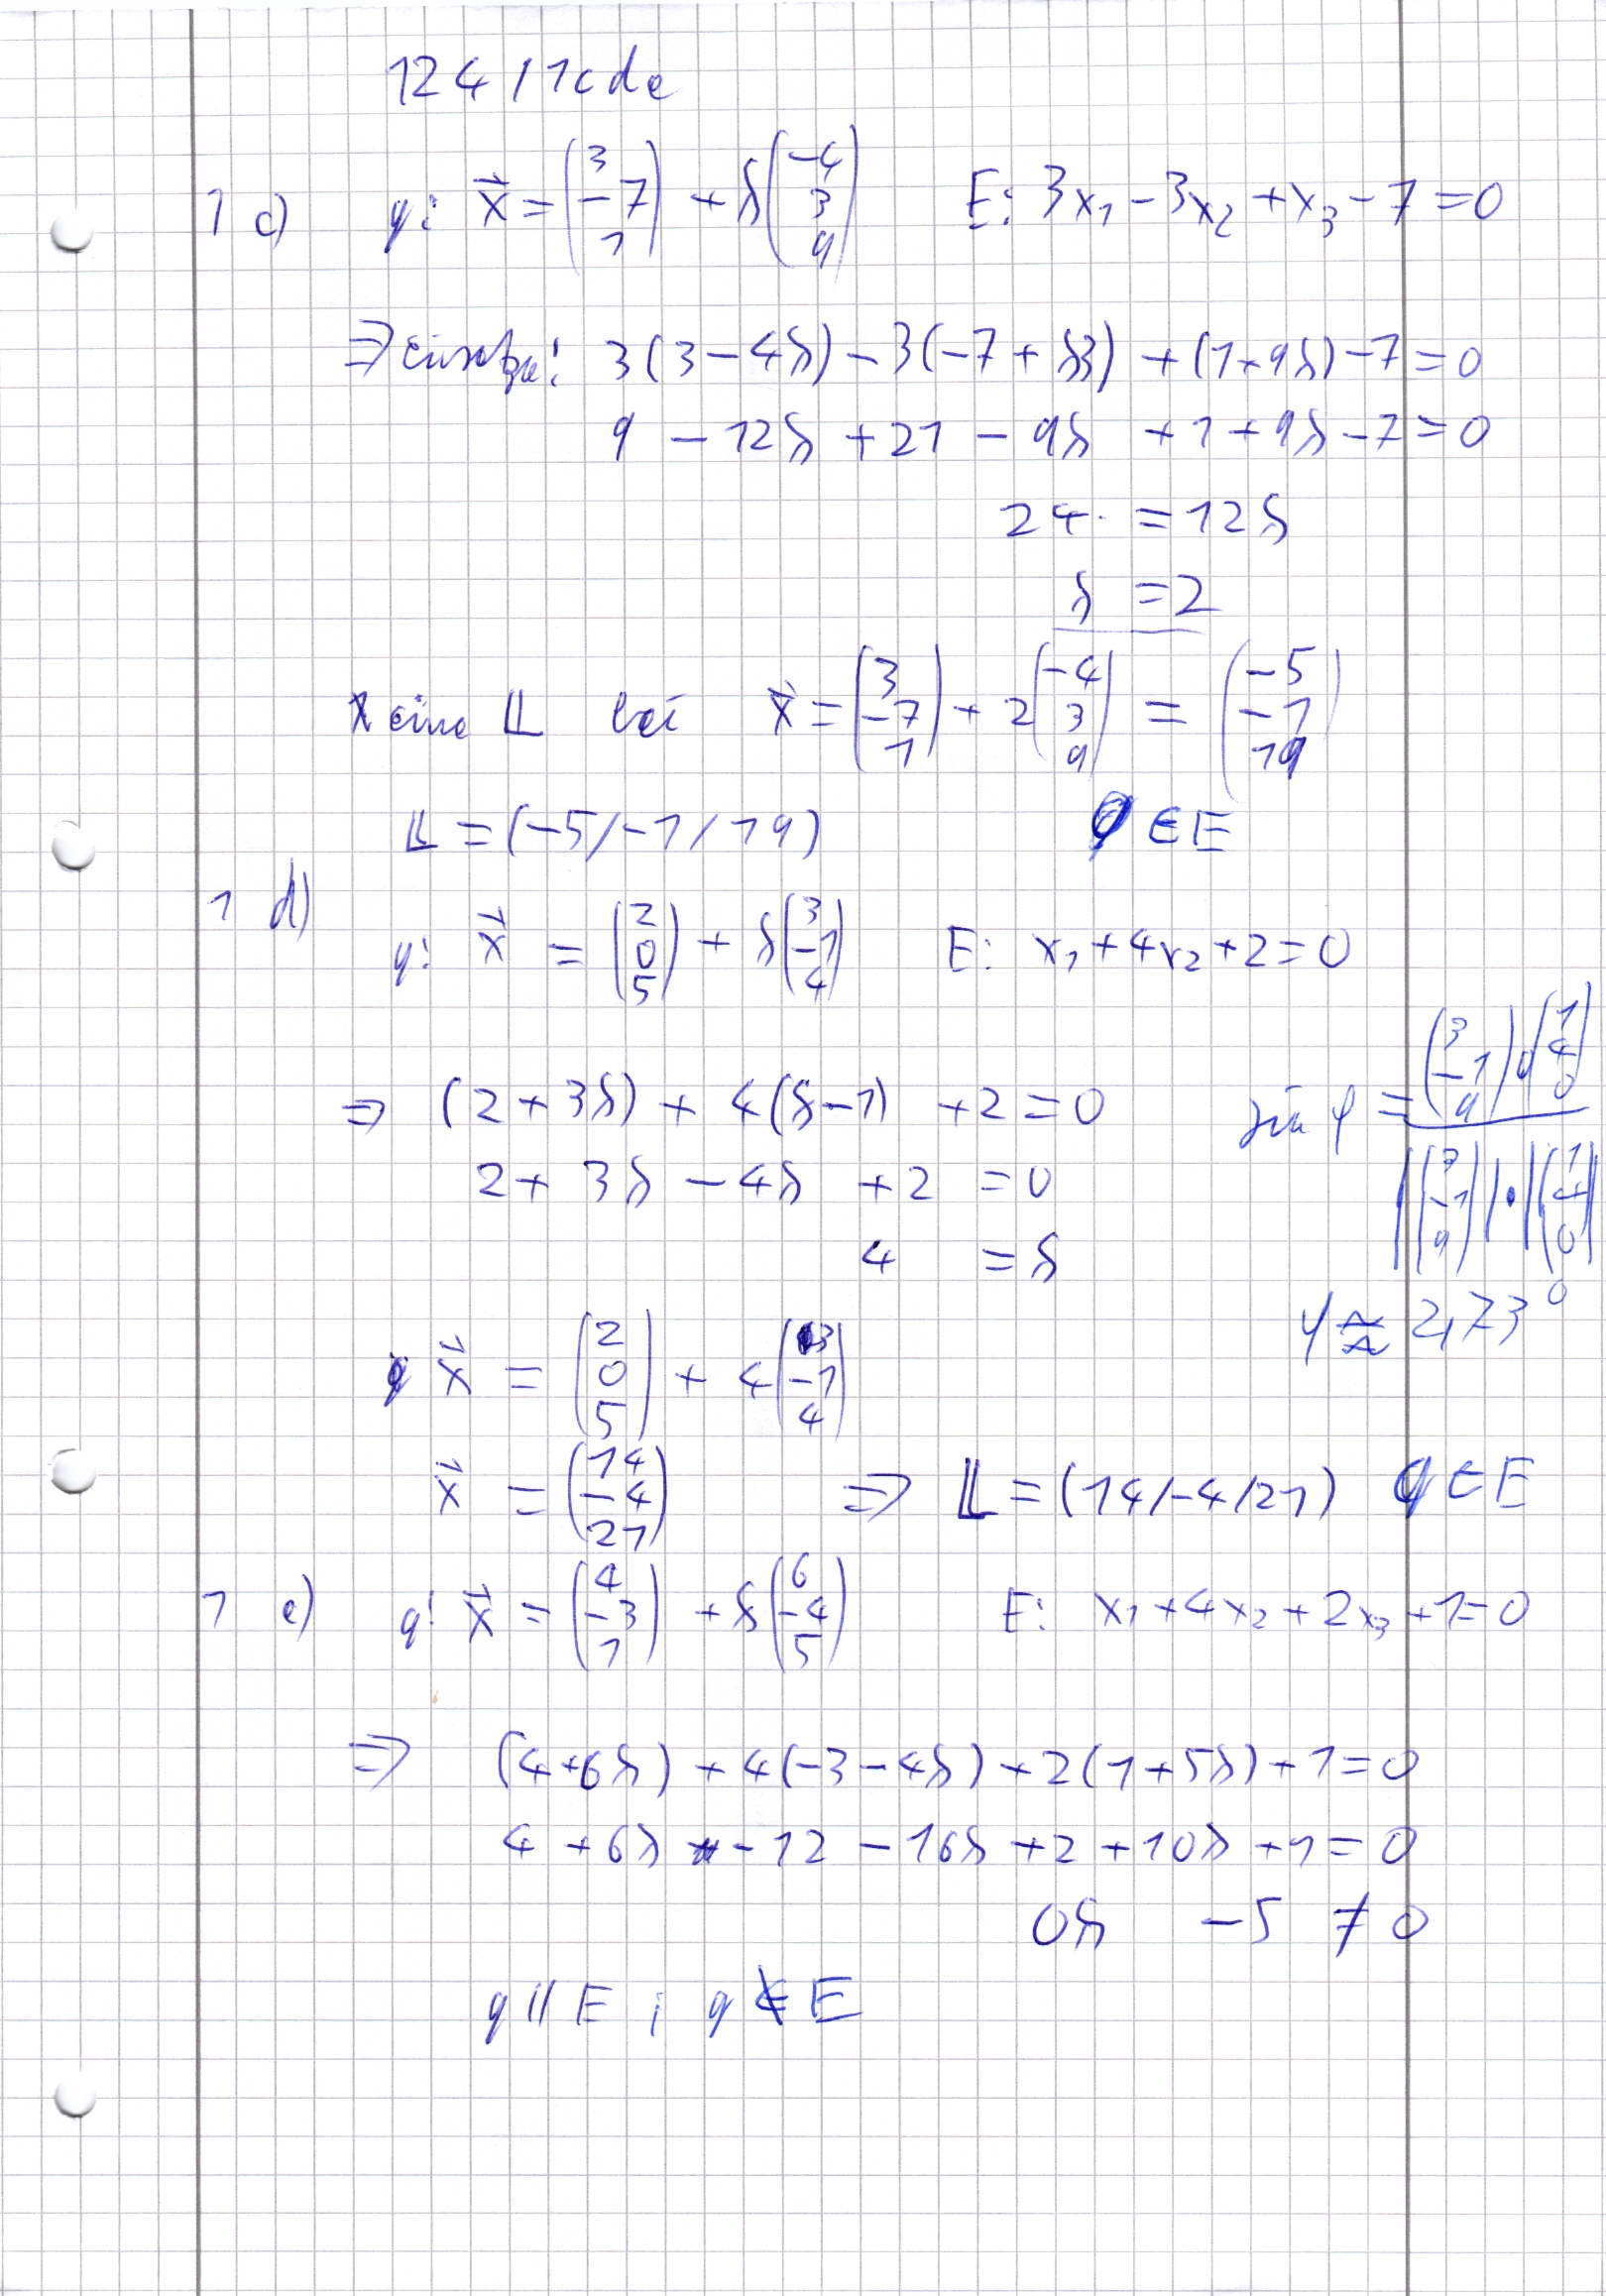 124/1cde
1 c) g: x⃗ = (3 -7 1) + s(-4 3 9) E: 3x₁ - 3x₂ + x₃ - 7 = 0
⇒ 3(3 - 4s) - 3(-7 + s3) + (1+9s) - 7 = 0
9 - 12s + 21 - 9s + 1 + 9s - 7 = 0
24 = 12s
s = 2
eine 𝕃 bei x⃗ = (3 -7 1) + 2(-4 3 9) = (-5 -1 19)
𝕃 = (-5/-1/19) g ∈ E
1 d)
g: x⃗ = (2 0 5) + s(3 -1 4) E: x₁ + 4x₂ + 2 = 0
⇒ (2 + 3s) + 4(s-1) + 2 = 0
2 + 3s - 4s + 2 = 0
4 = s
sin φ = (3 -1 9) ∘ (1 4 0) / |(3 -1 9)| · |(1 4 0)|
φ ≈ 2,73°
x⃗ = (2 0 5) + 4(3 -1 4)
x⃗ = (14 -4 21) ⇒ 𝕃 = (14/-4/21) g ∈ E
1 e) g: x⃗ = (4 -3 1) + s(6 -4 5) E: x₁ + 4x₂ + 2x₃ + 1 = 0
⇒ (4+6s) + 4(-3-4s) + 2(1+5s) + 1 = 0
4 + 6s - 12 - 16s + 2 + 10s + 1 = 0
0s - 5 ≠ 0
g || E ; g ∉ E